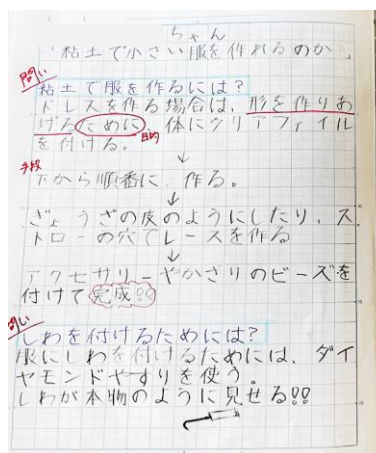 ちゃん
「粘土で小さい服を作れるのか?」
問い
粘土で服を作るには?
ドレスを作る場合は、形を作りあ
げるために、体にクリアファイル
を付ける。
目的
↓
手段
下から順番に、作る。
↓
ぎょうざの皮のようにしたり、ス
トローの穴でレースを作る
↓
アクセサリーやかざりのビーズを
付けて完成!!
問い
しわを付けるためには?
服にしわを付けるためには、ダイ
ヤモンドやすりを使う。
しわが本物のように見せる!!